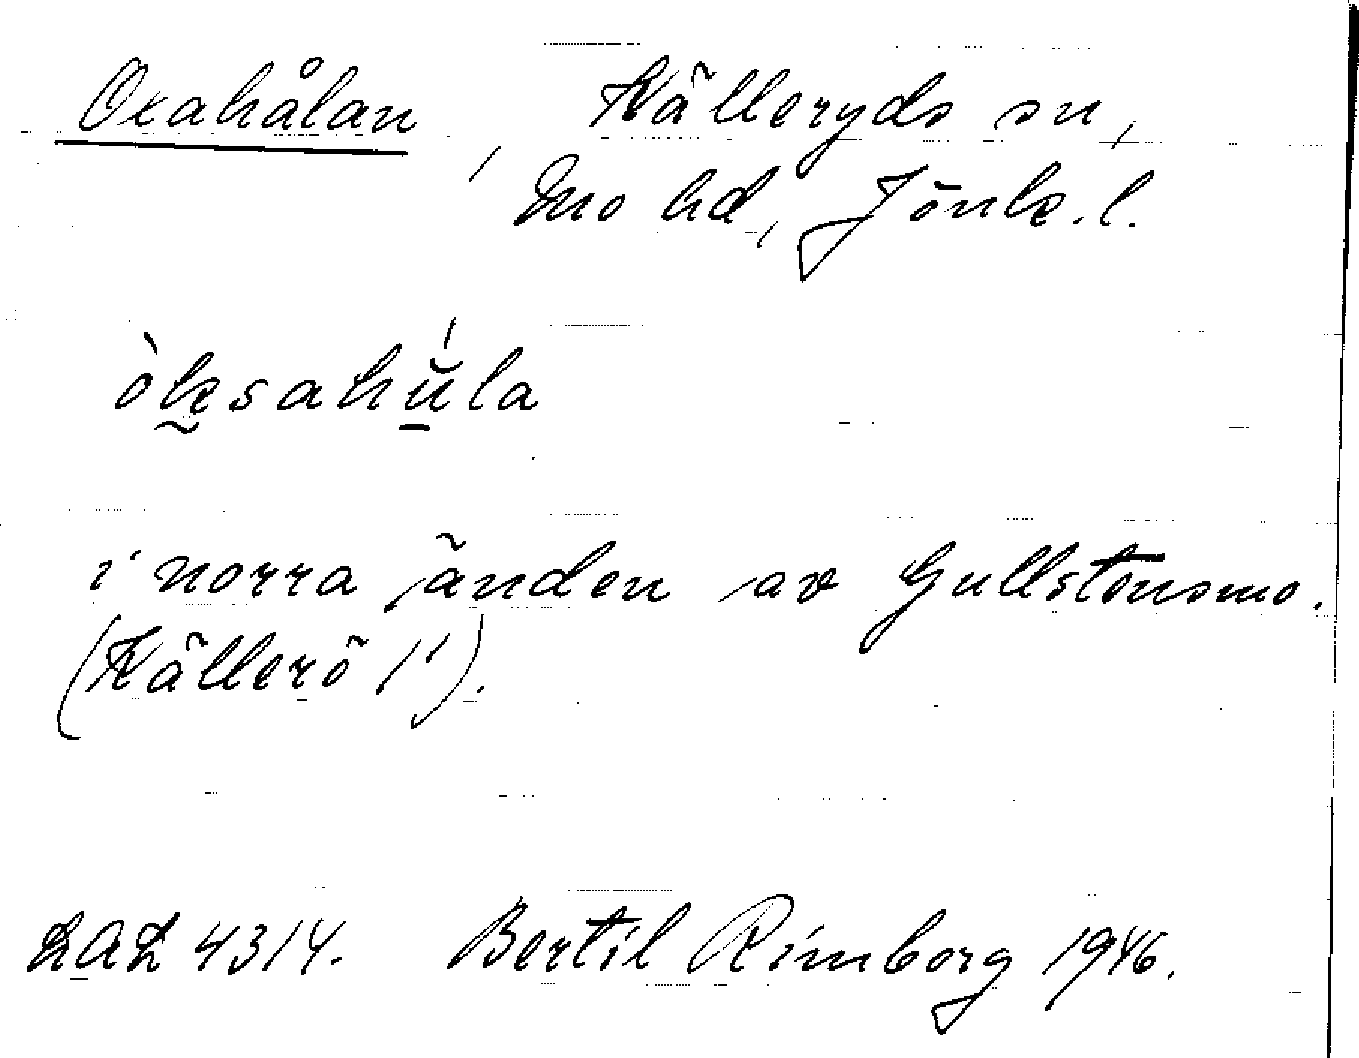 Oxahålan, Källeryds sn,
Mo hd, Jönk. l.
òksahŭ́la
i norra änden av Gullstensmo.
(Källerö 1").
LAL 4314. Bertil Rimborg 1946.